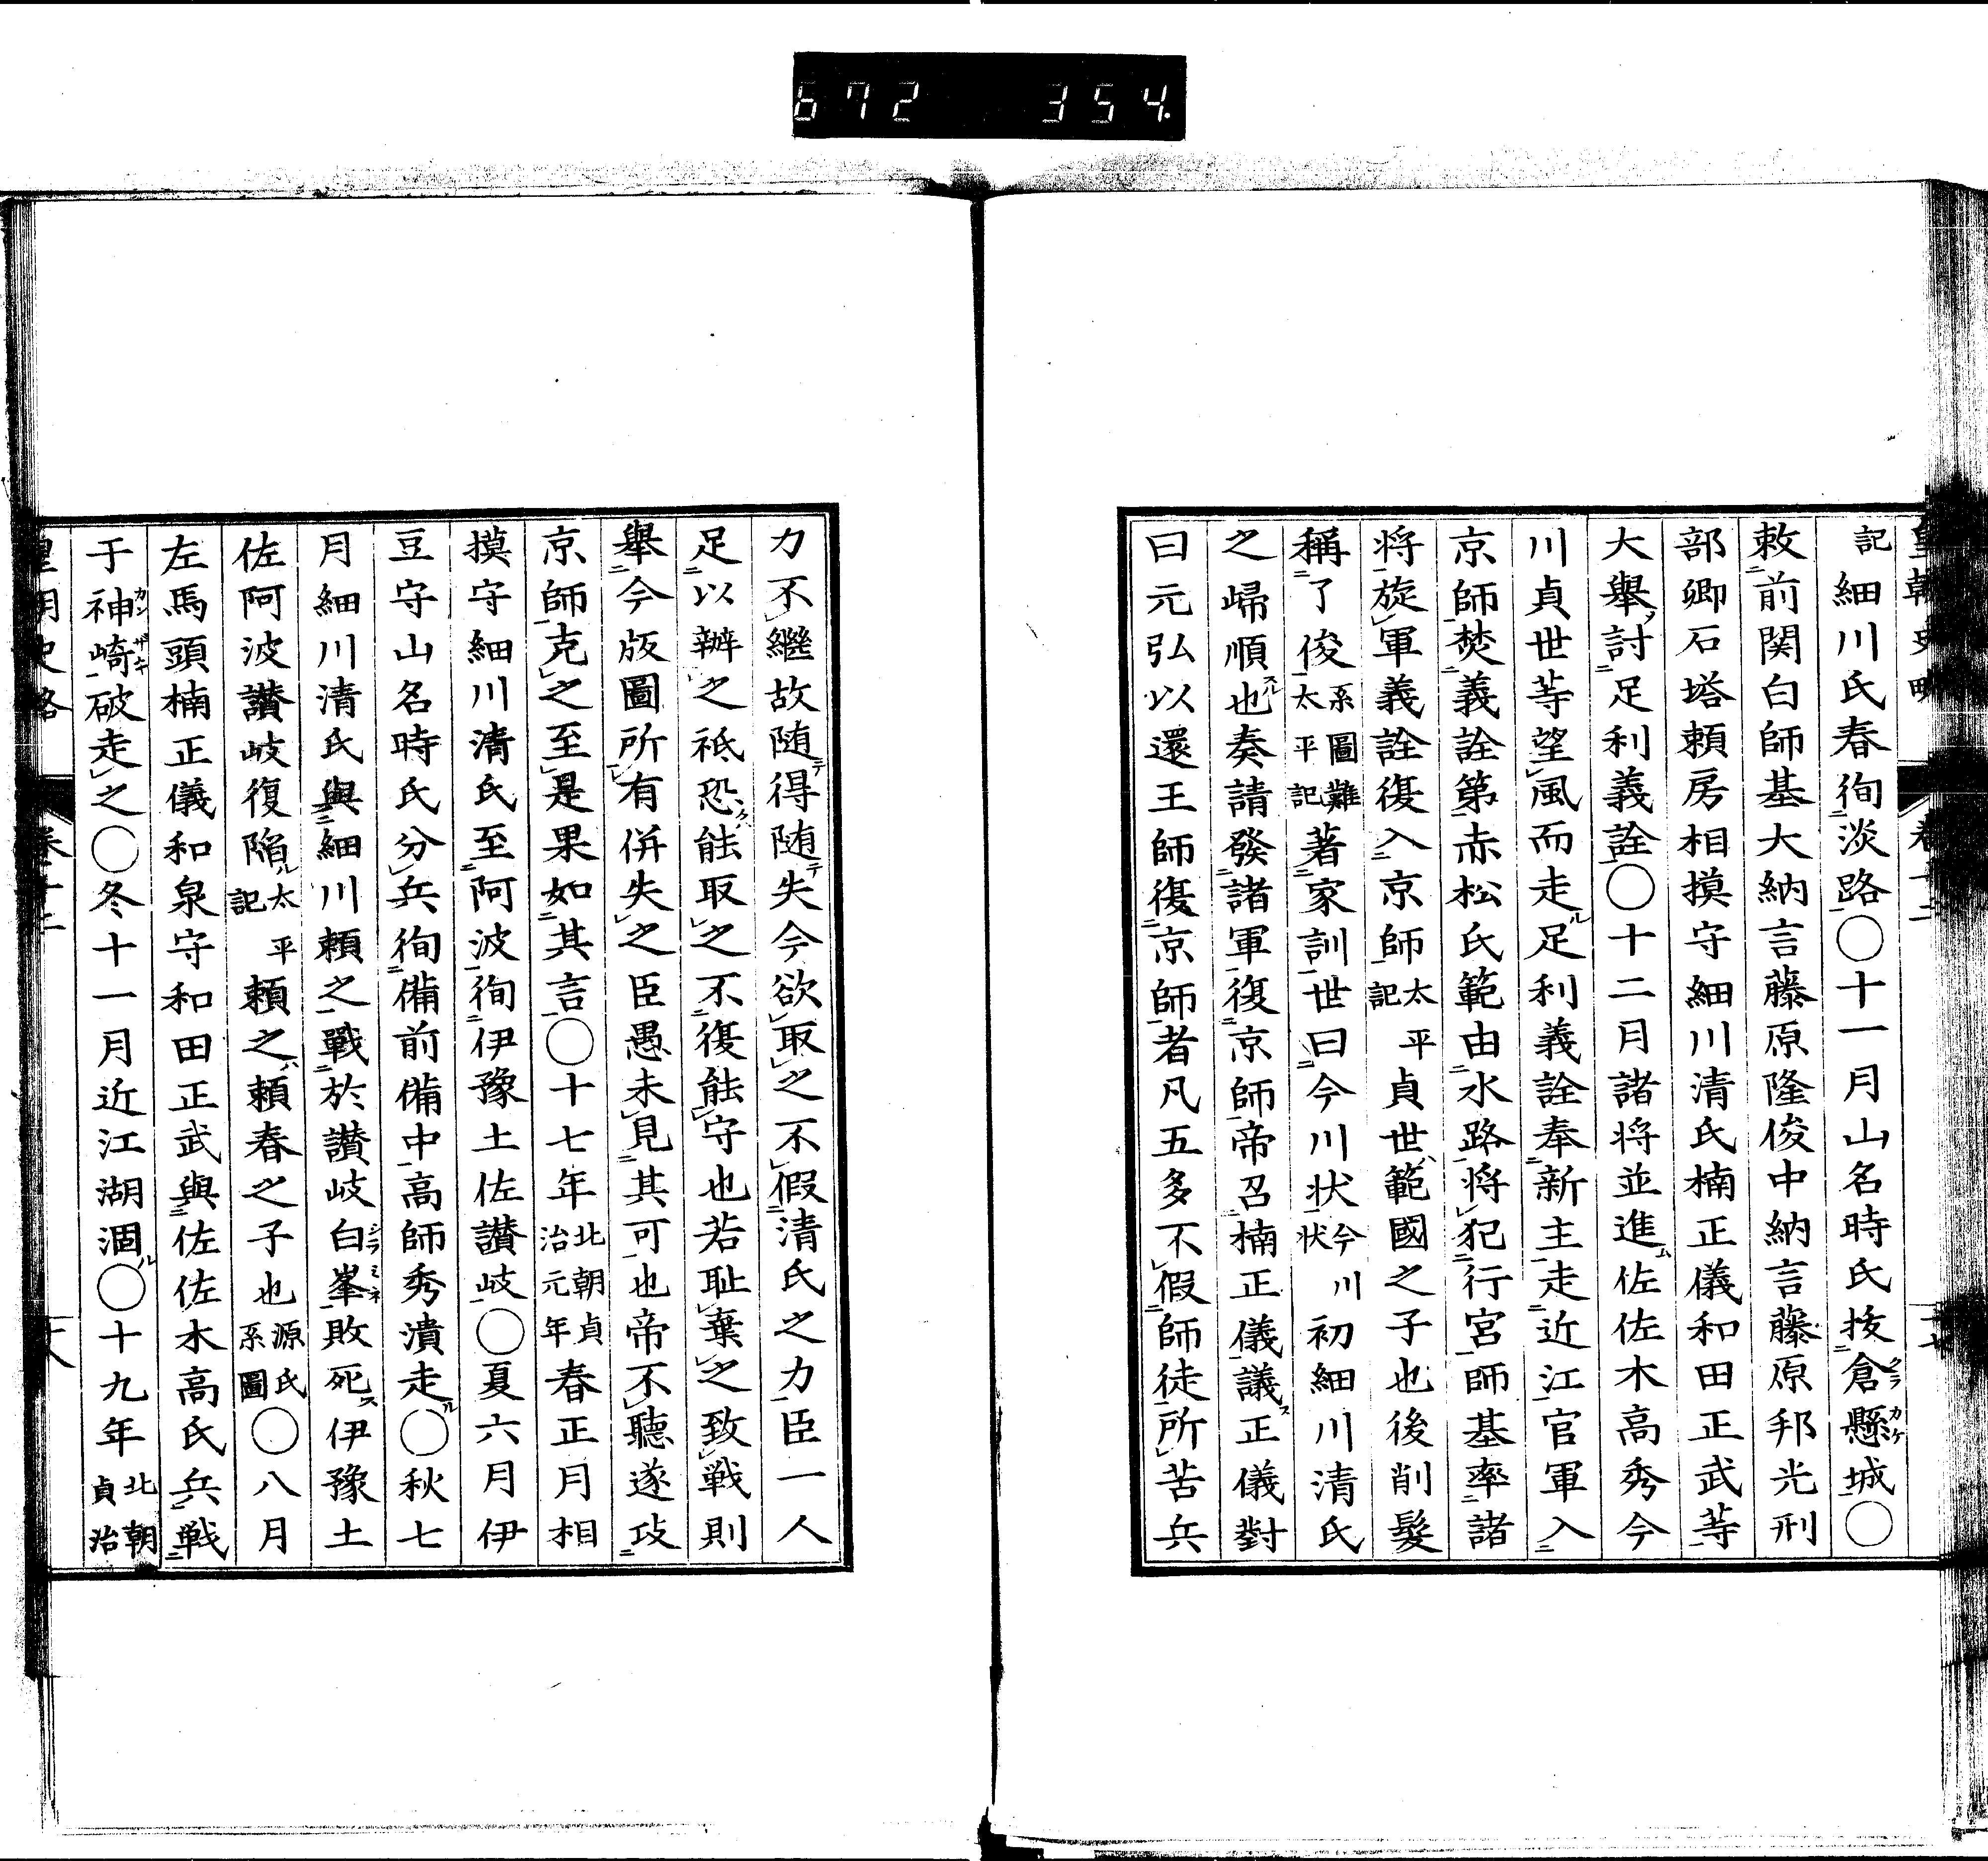 672 354.
記細川氏春徇淡路〇十一月山名時氏抜倉懸城〇
敕前関白師基大納言藤原隆俊中納言藤原邦光刑
部卿石塔頼房相摸守細川清氏楠正儀和田正武等
大舉討足利義詮〇十二月諸将並進佐佐木高秀今
川貞世等望風而走足利義詮奉新主走近江官軍入
京師焚義詮第赤松氏範由水路将犯行宮師基率諸
将旋軍義詮復入京師太平記貞世範國之子也後削髮
稱了俊系圖難太平記著家訓世曰今川状今川状初細川清氏
之歸順也奏請發諸軍復京師帝召楠正儀議正儀對
曰元弘以還王師復京師者凡五多不假師徒所苦兵
力不繼故随得随失今欲取之不假清氏之力臣一人
足以辦之祗恐能取之不復能守也若耻棄之致戦則
舉今版圖所有併失之臣愚未見其可也帝不聽遂攻
京師克之至是果如其言〇十七年北朝貞治元年春正月相
摸守細川清氏至阿波徇伊豫土佐讃岐〇夏六月伊
豆守山名時氏分兵徇備前備中高師秀潰走〇秋七
月細川清氏與細川頼之戰於讃岐白峯敗死伊豫土
佐阿波讃岐復陥太平記頼之頼春之子也源氏系圖〇八月
左馬頭楠正儀和泉守和田正武與佐佐木高氏兵戦
于神崎破走之〇冬十一月近江湖涸〇十九年北朝貞治